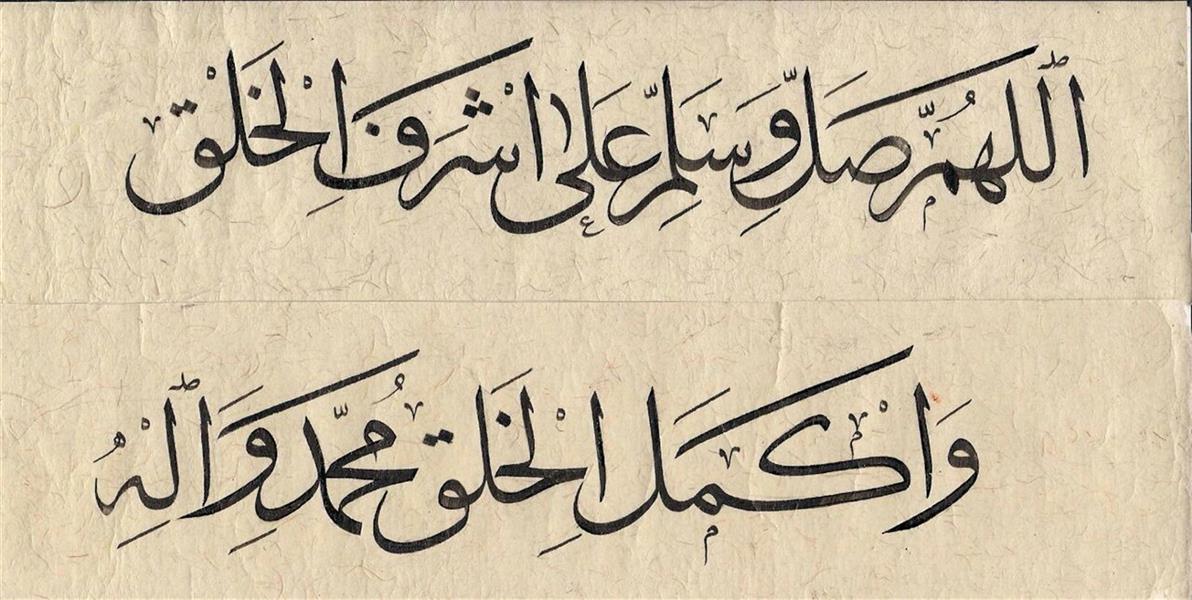 اللهم صل وسلم على اشرف الخلق
واكمل الخلق محمد واله